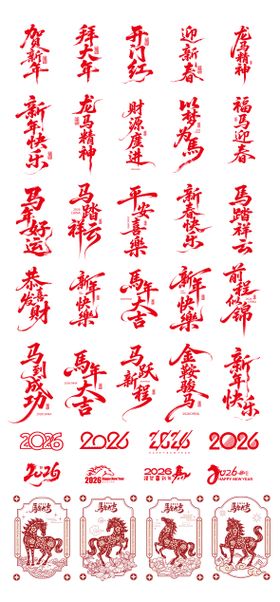 贺新年
拜大年
开门红
迎新春
龙马精神
新年快乐
龙马精神
财源广进
以梦为馬
福马迎春
马年好运
马踏祥云
平安喜樂
新春快乐
马踏祥云
恭喜发财
新年快樂
馬年大吉
新年快樂
前程似锦
马到成功
馬年大吉
马跃新程
金鞍骏马
新年快乐
2026
2026
2026
2026
2026
2026
Happy New Year
2026
馬
2026
HAPPY NEW YEAR